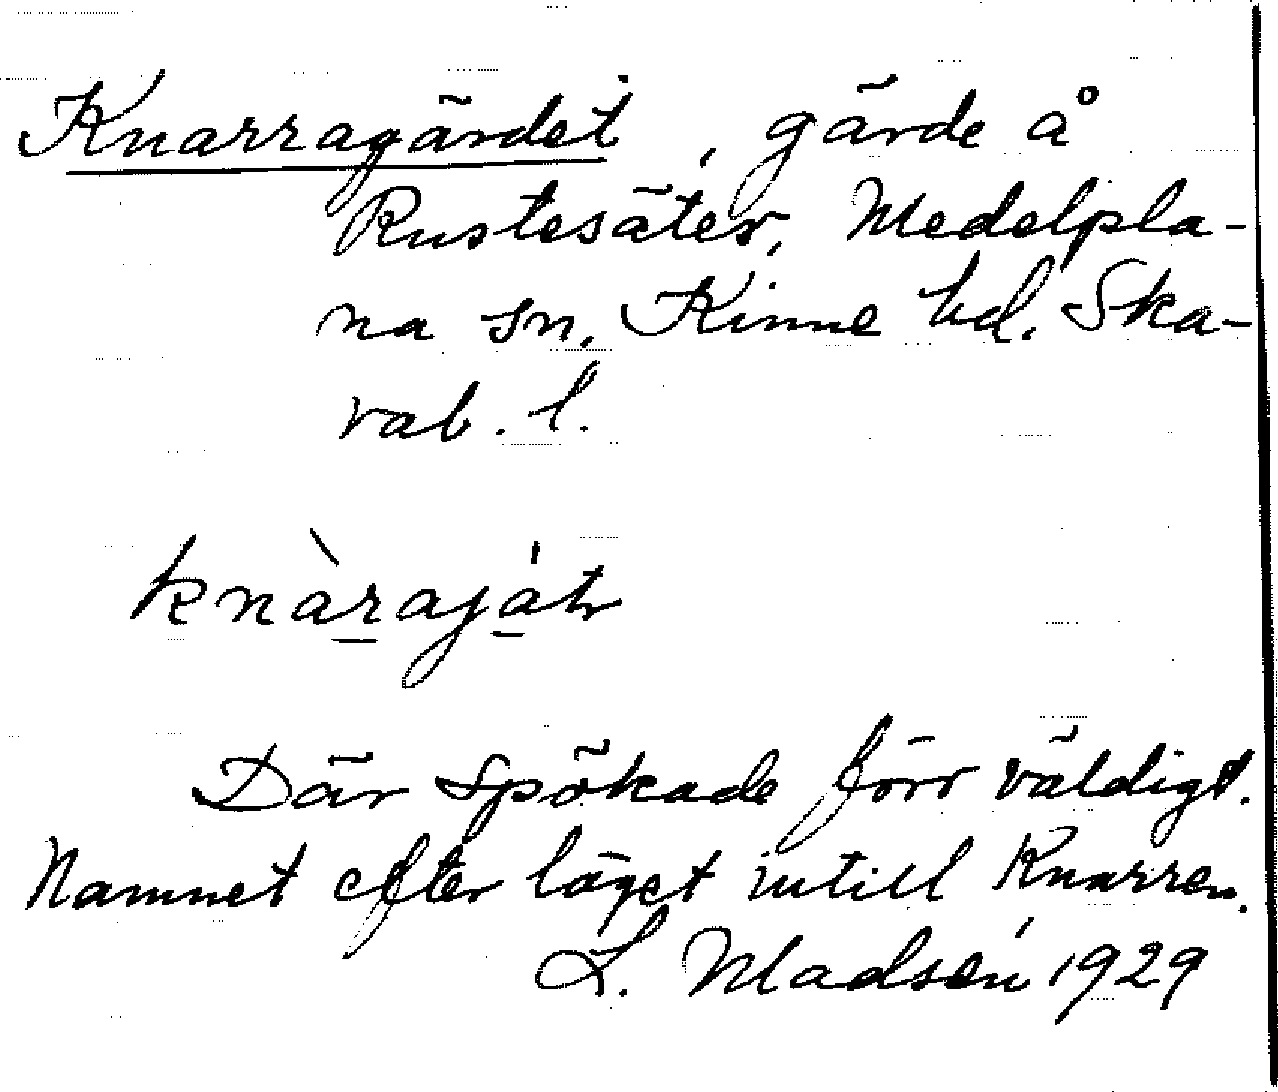 Knarragärdet, gärde å
Rustesäter, Medelpla-
na sn, Kinne hd. Ska-
rab. l.
knàraját
Där spökade förr väldigt.
Namnet efter läget intill Knarren.
L. Madsén 1929